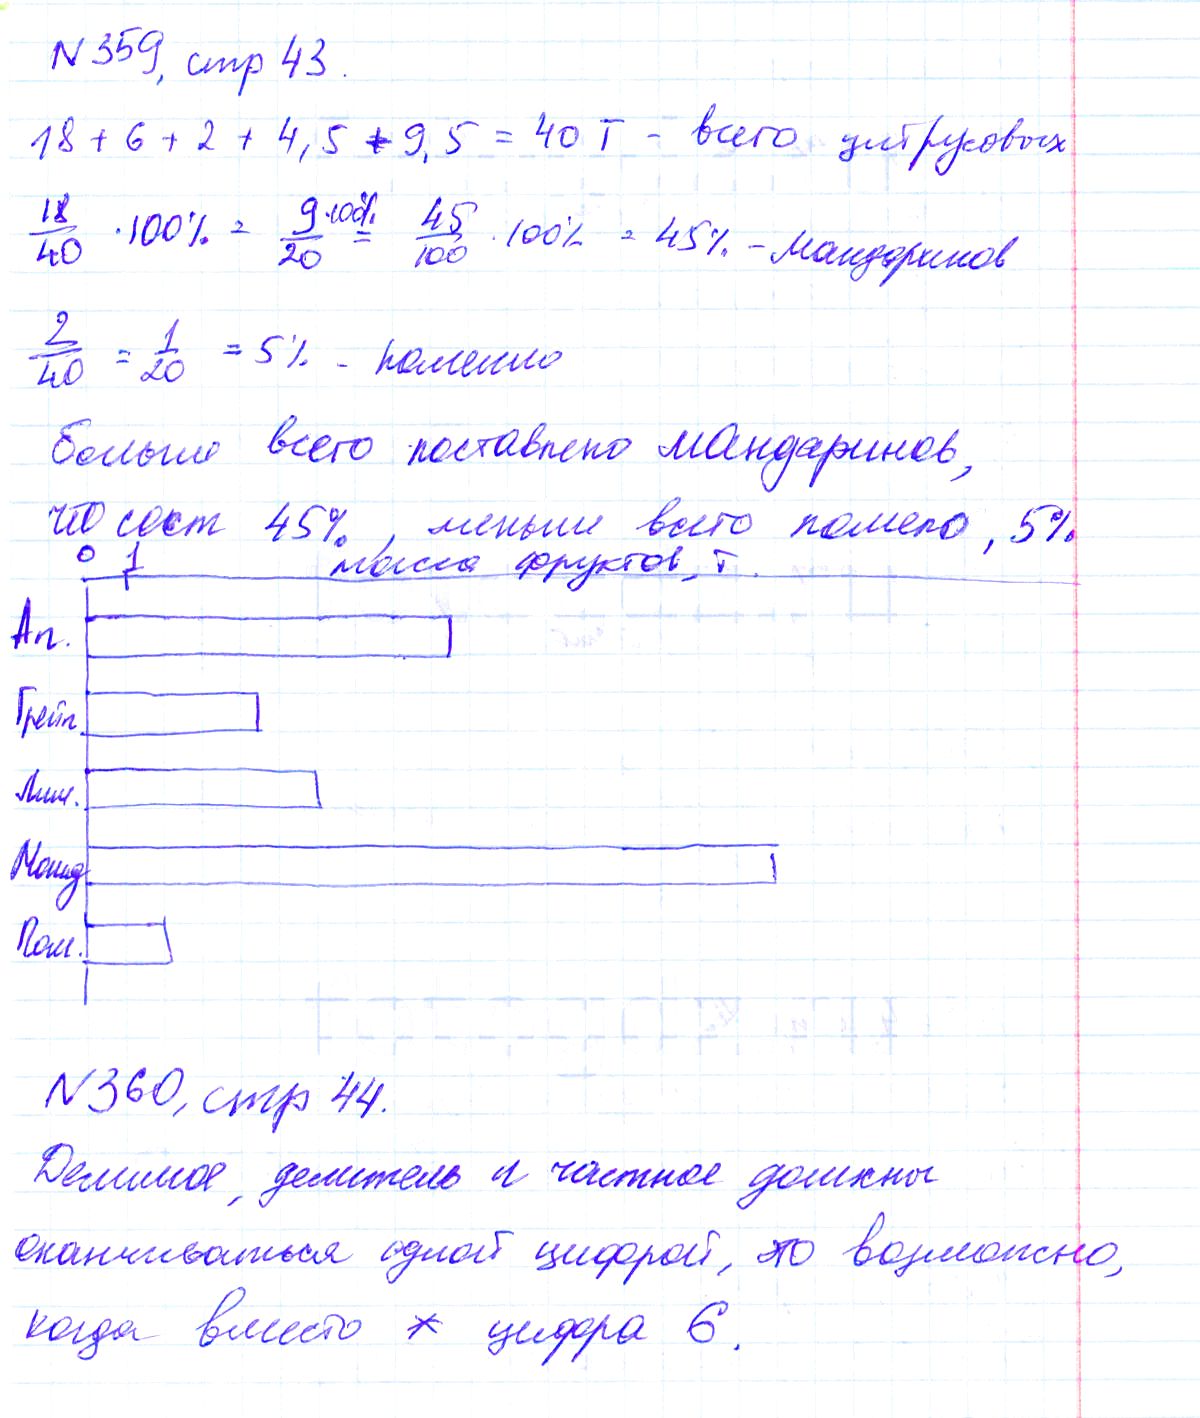 N359, стр 43.
18 + 6 + 2 + 4,5 + 9,5 = 40 Т - всего цитрусовых
18/40 · 100% = 9/20 · 100% = 45/100 · 100% = 45% - мандаринов
2/40 = 1/20 = 5% - помело
Больше всего поставлено мандаринов,
что сост 45%, меньше всего помело, 5%.
0 1 масса фруктов, т.
Ап.
Грейп.
Лим.
Манд
Пом.
N360, стр 44.
Делимое, делитель и частное должны
оканчиваться одной цифрой, это возможно,
когда вместо * цифра 6.